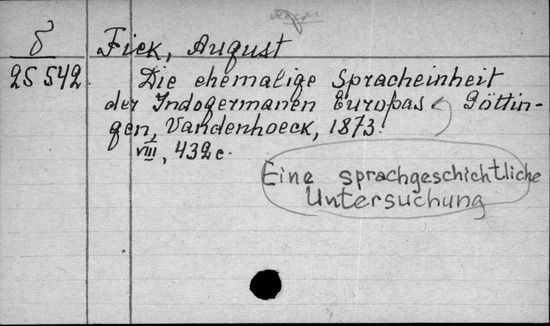 δ Fick, August
25 542 Die ehemalige Spracheinheit
der Indogermanen Europas Götting-
gen, Vandenhoeck, 1873.
VIII, 432 c.
Eine sprachgeschichtliche
Untersuchung